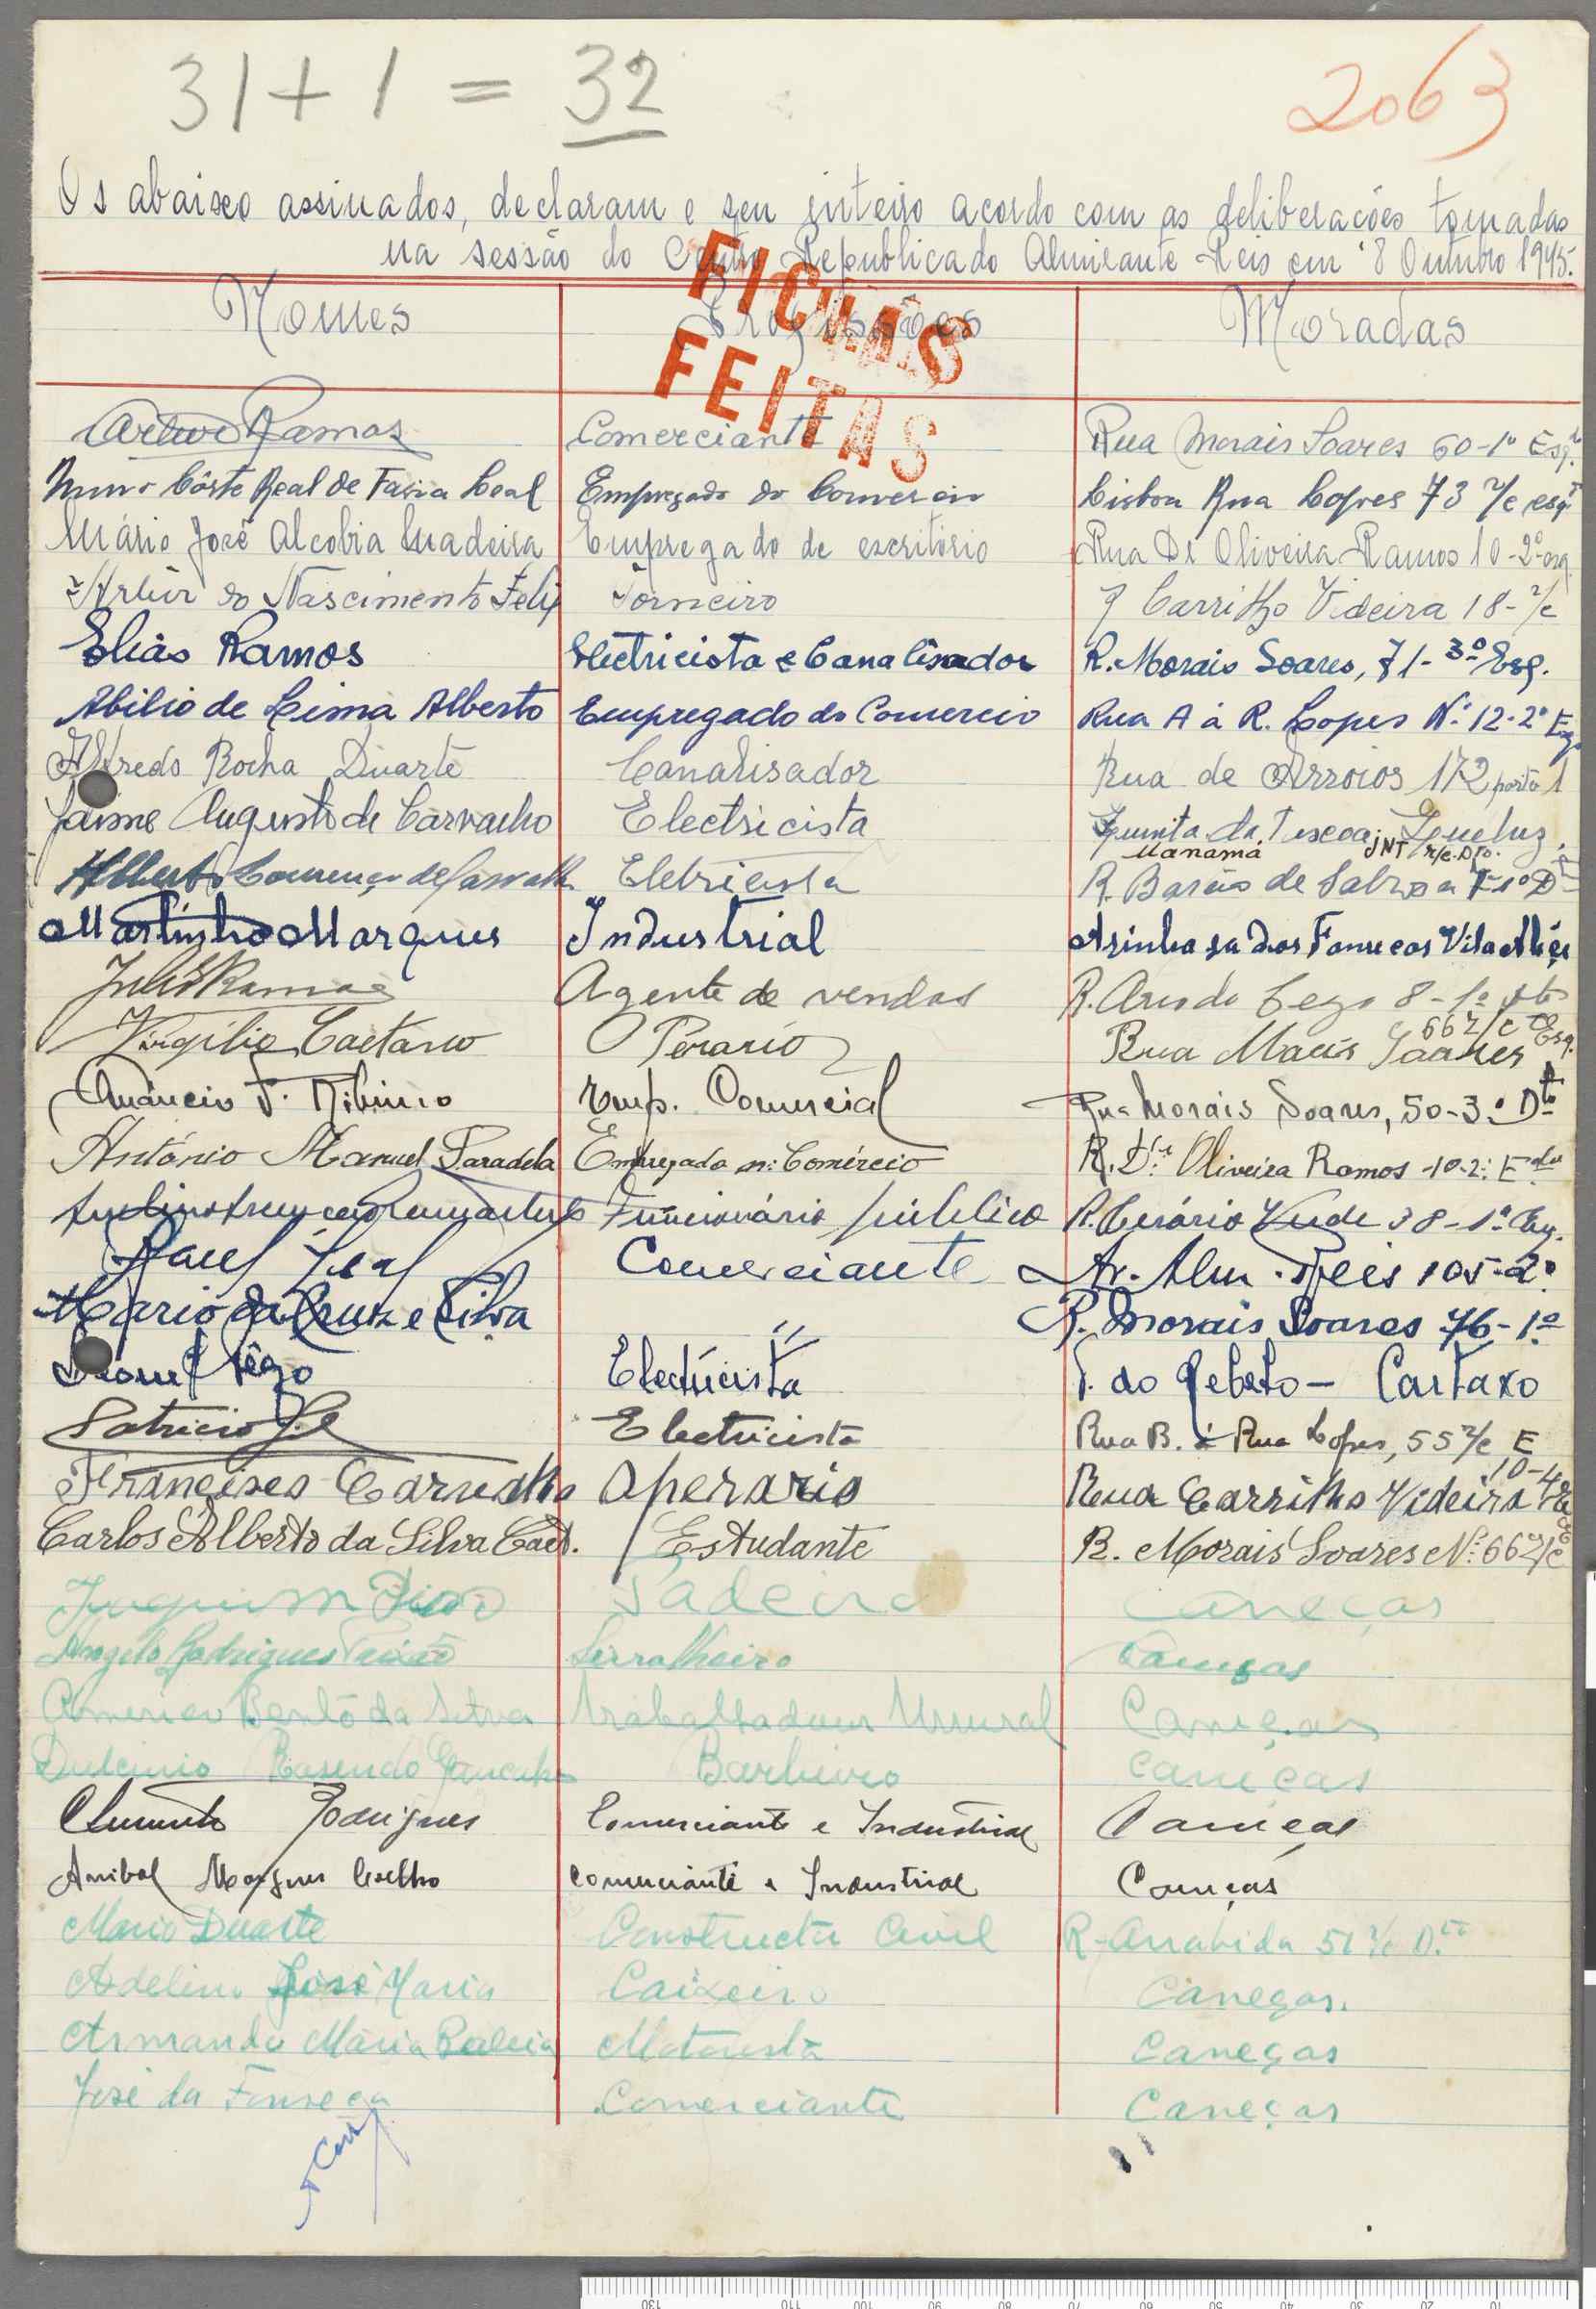 31 + 1 = 32
2063
Os abaixo assinados, declaram o seu inteiro acordo com as deliberações tomadas
na sessão do Centro Republicado Almirante Reis em 8 Outubro 1945.
FICHAS
FEITAS
Nomes Profissões Moradas
Artur Ramos Comerciante Rua Morais Soares 60-1º Esq.
Nuno Côrte Real de Faria Leal Empregado do Comercio Lisboa Rua Lopes 73 r/c esq
Mário José Alcobia Madeira Empregado de escritório Rua Dr Oliveira Ramos 10-2º
Artur do Nascimento Felix Torneiro R Carrilho Videira 18-r/c
Elias Ramos Electricista e Canalisador R. Morais Soares, 71-3º Esq.
Abilio de Lima Alberto Empregado do Comercio Rua A á R. Lopes Nº 12-2º
Alfredo Rocha Duarte Canalisador Rua de Arroios 172 porta 1
Jaime Augusto de Carvalho Electricista Quinta da
Mananá JNT r/c. Dto.
Alberto Lourenço de Carvalho Eletricista R. Barão de Sabrosa
Martinho Marques Industrial Azinhaga das Vila
Julio Ramos Agente de vendas R. Arco do Cego 8-1º
66 r/c Esq.
Virgílio Caetano Operario Rua Soares
Amâncio F. Ribeiro Emp. Comercial Rua Morais Soares, 50-3º Dto
António Manuel Paradela Empregado no Comércio R. Dr. Oliveira Ramos -10-2º
Funcionário público R. Cesário Verde 38-1º Esq.
Raul Leal Comerciante Av. Alm. Reis 105-2º
Mario da Cruz e Silva " R. Morais Soares 76-1º
Electricista do Cartaxo
Patricio Gil Electricista Rua B. á Rua Lopes, 55 r/c E
Francisco Carvalho Operario Rua Carrilho Videira 10-4º
Carlos Alberto da Silva Caet. Estudante R. Morais Soares Nº 66 r/c
Joaquim Dias Padeiro Caneças
Angelo Rodrigues Serralheiro Caneças
Americo Bento da Silva Trabalhadour Rrural Caneças
Dulcinio Rosendo Barbeiro Caneças
Clemente Rodrigues Comerciante e Industrial Caneças
Anibal Marques Coelho Comerciante e Industrial Caneças
Mario Duarte Constructor Civil R-Arrabida 51 r/c D.to
Adelino José Maria Caixeiro Caneças.
Armando Maria Motorista Caneças
José da Fonseca Comerciante Caneças